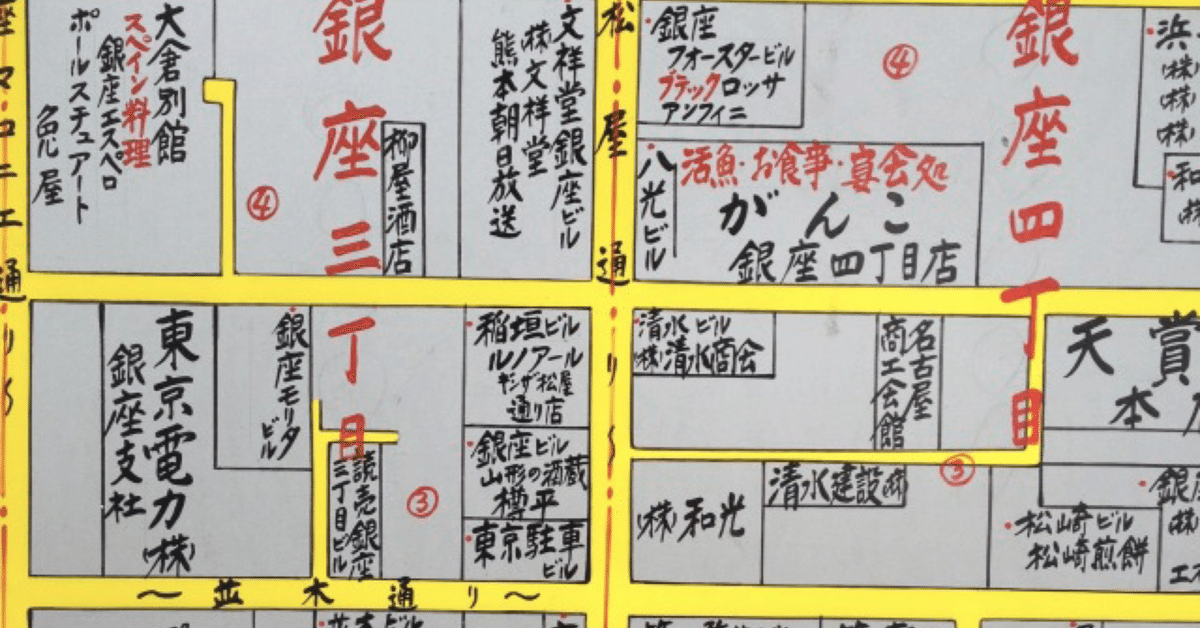 銀座三丁目
銀座四丁目
マロニエ通り〜
松屋通り〜
〜並木通り〜
大倉別館
スペイン料理
銀座エスペロ
ポールスチュアート
④
柳屋酒店
文祥堂銀座ビル
(株)文祥堂
熊本朝日放送
銀座
フォースタービル
ブラックロッサ
アンフィニ
④
八光ビル
活魚・お食事・宴会処
がんこ
銀座四丁目店
浜
(株)
(株)
(株)
和
(株)
東京電力(株)
銀座支社
銀座モリタビル
読売銀座
三丁目ビル
③
稲垣ビル
ルノアール
ギンザ松屋
通り店
銀座ビル
山形の酒蔵
樽平
東京駐車
ビル
清水ビル
(株)清水商会
名古屋
商工会館
天賞
本
(株)和光
清水建設(株)
③
松崎ビル
松崎煎餅
銀
(株)
エス